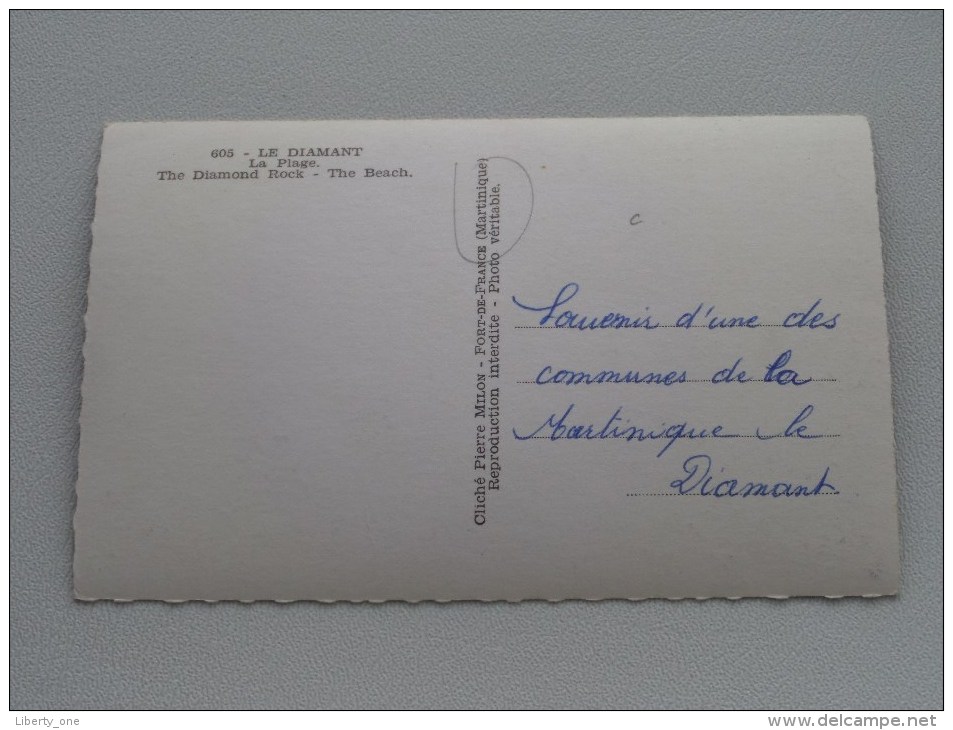 605 - LE DIAMANT
La Plage.
The Diamond Rock - The Beach.
Cliché Pierre MILON - FORT-DE-FRANCE (Martinique)
Reproduction interdite - Photo véritable.
D
c
Souvenir d'une des
communes de la
Martinique le
Diamant
Liberty_one
delcampe.net